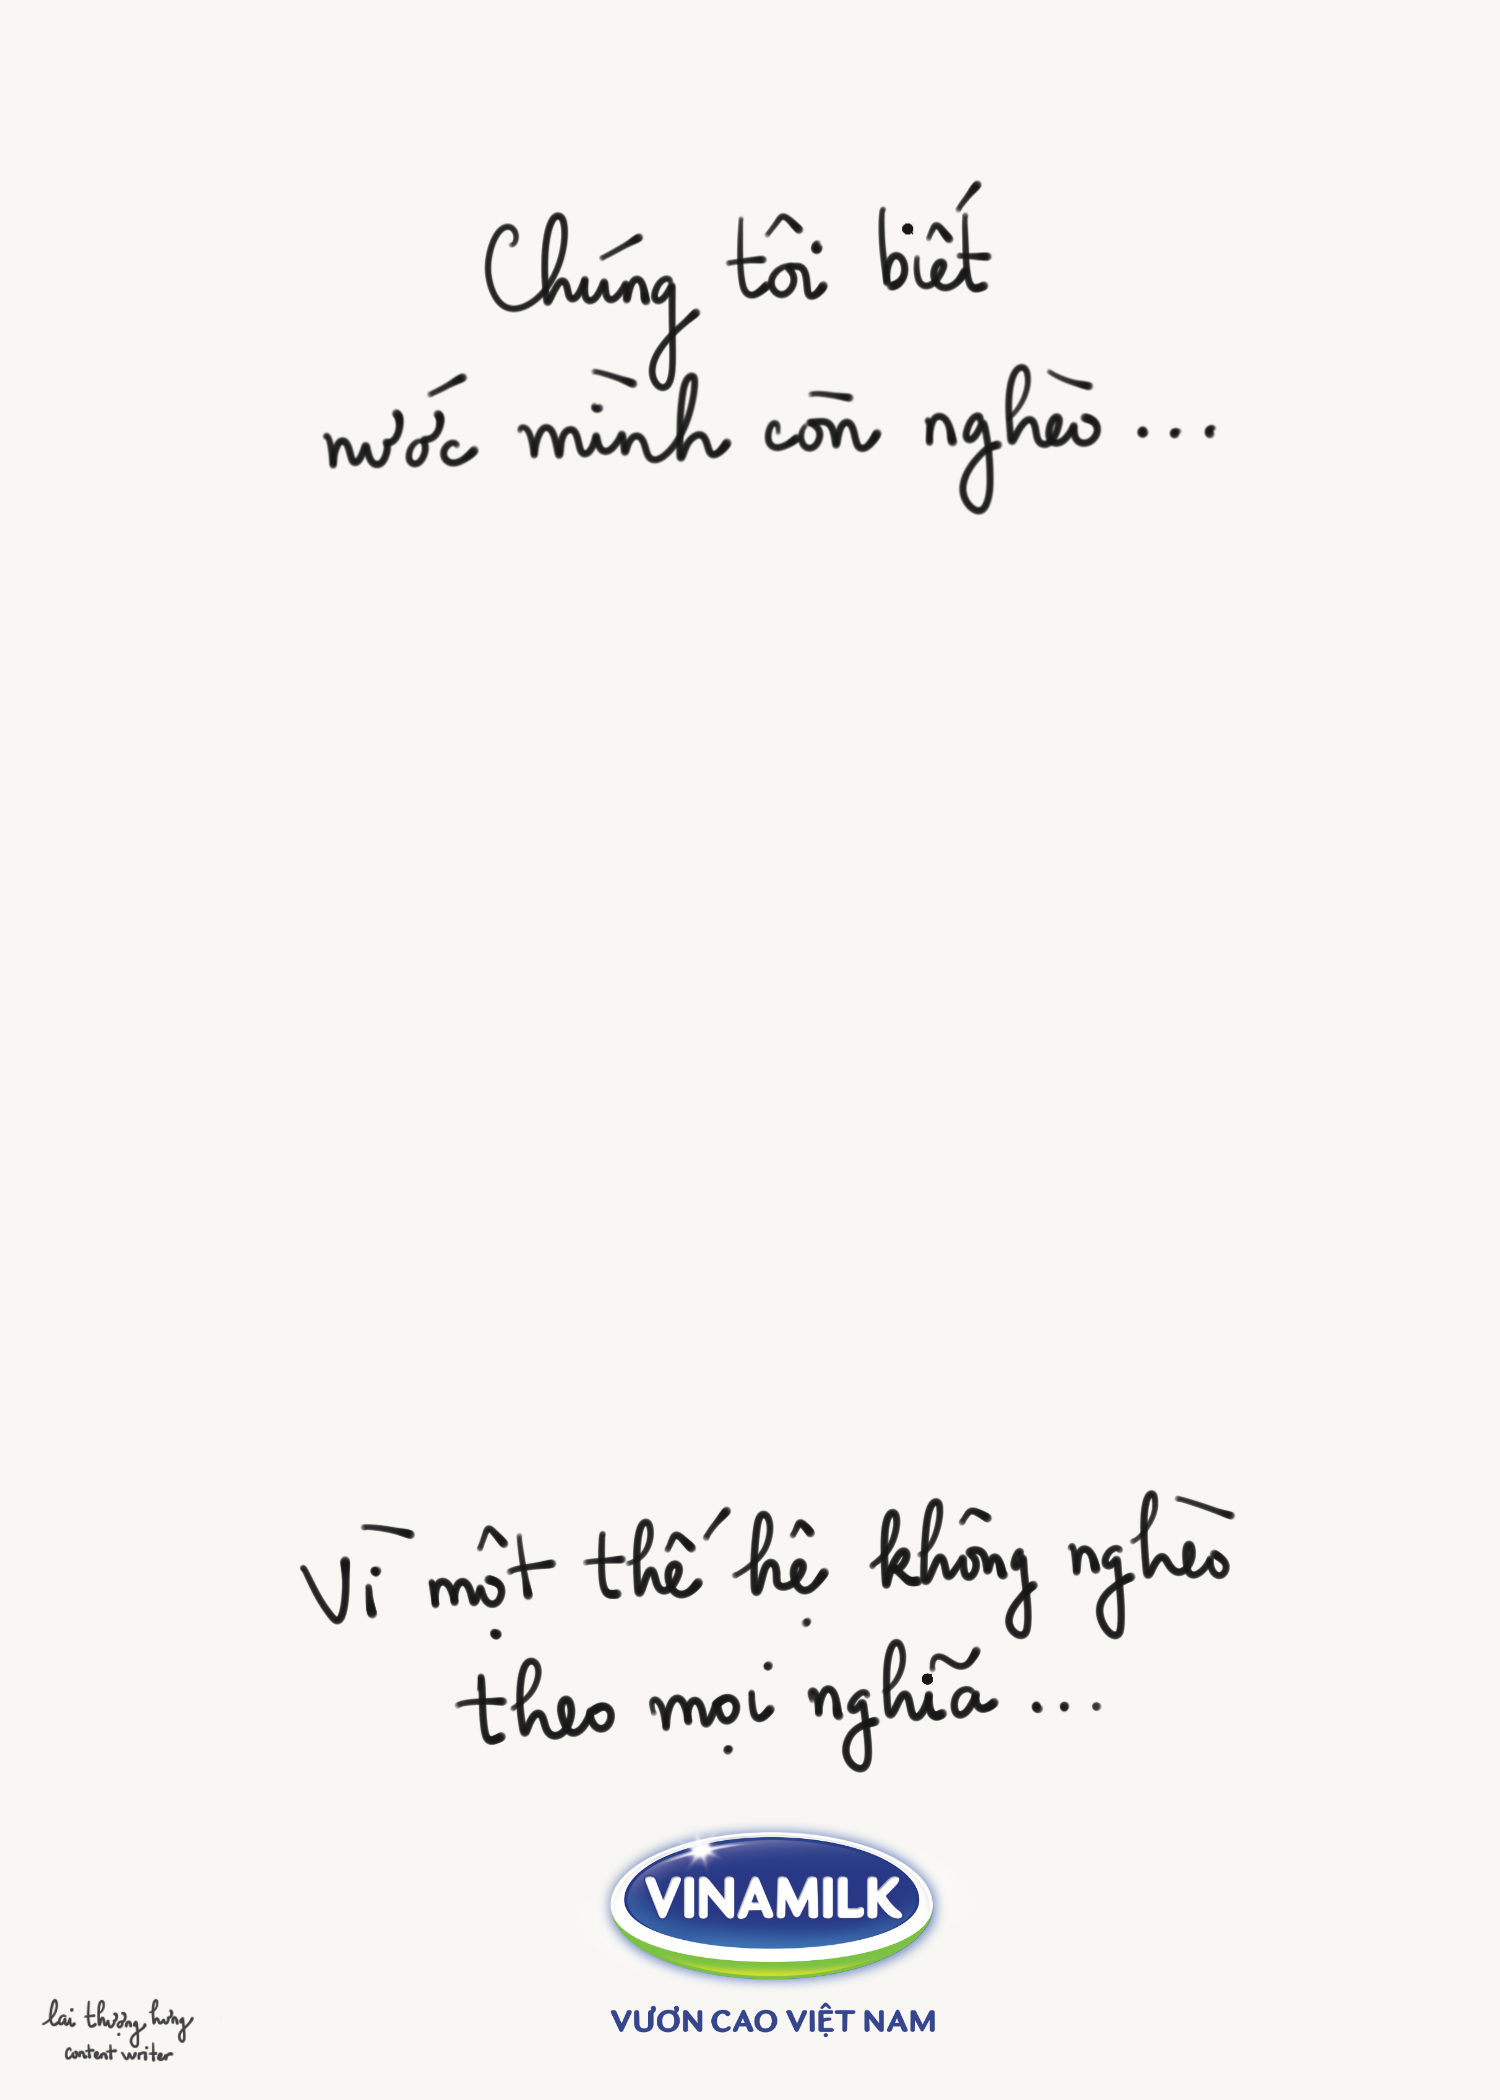 Chúng tôi biết
nước mình còn nghèo...
Vì một thế hệ không nghèo
theo mọi nghĩa...
VINAMILK
VƯƠN CAO VIỆT NAM
lai thượng hưng
content writer